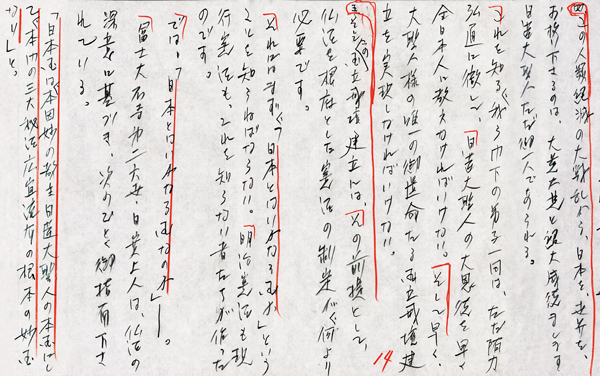 の人類絶滅の大戦乱から、日本を、世界を、
お救い下さるのは、大慈大悲と絶大威徳まします
日蓮大聖人ただ御一人であられる。
これを知るゆえに門下の弟子一同は、ただ阿力
弘通に徹し、日蓮大聖人の大恩徳を早く
全日本人に教えなければいけない。そして早く、
大聖人様の唯一の御遺命たる国立戒壇建
立を実現しなければいけない。
国立戒壇建立には、その前提として、
仏法を根底とした憲法の制定が、何より
必要です。
それにはまず「日本とはいかなる国か」という
ことを知らねばならない。明治憲法も現
行憲法も、これを知らない者たちが作った
のです。
では、「日本とはいかなる国なのか」―。
富士大石寺第二六世・日寛上人は、仏法の
深意に基づき、次のごとく御指南下さ
れている。
「日本国は本因妙の教主日蓮大聖人の本国にし
て、本門の三大秘法広宣流布の根本の妙国
なり」と。
14